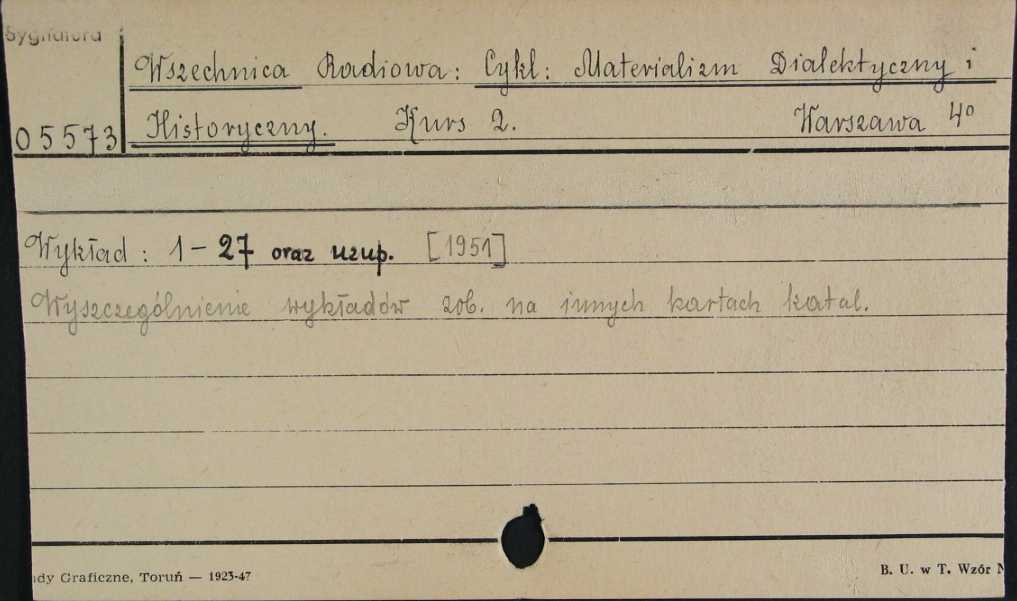 Sygnatura
Wszechnica Radiowa: Cykl: Materializm Dialektyczny i
05573 Historyczny. Kurs 2. Warszawa 4º
Wykład: 1-27 oraz uzup. [1951]
Wyszczególnienie wykładów zob. na innych kartach katal.
ady Graficzne, Toruń — 1923-47
B. U. w T. Wzór N